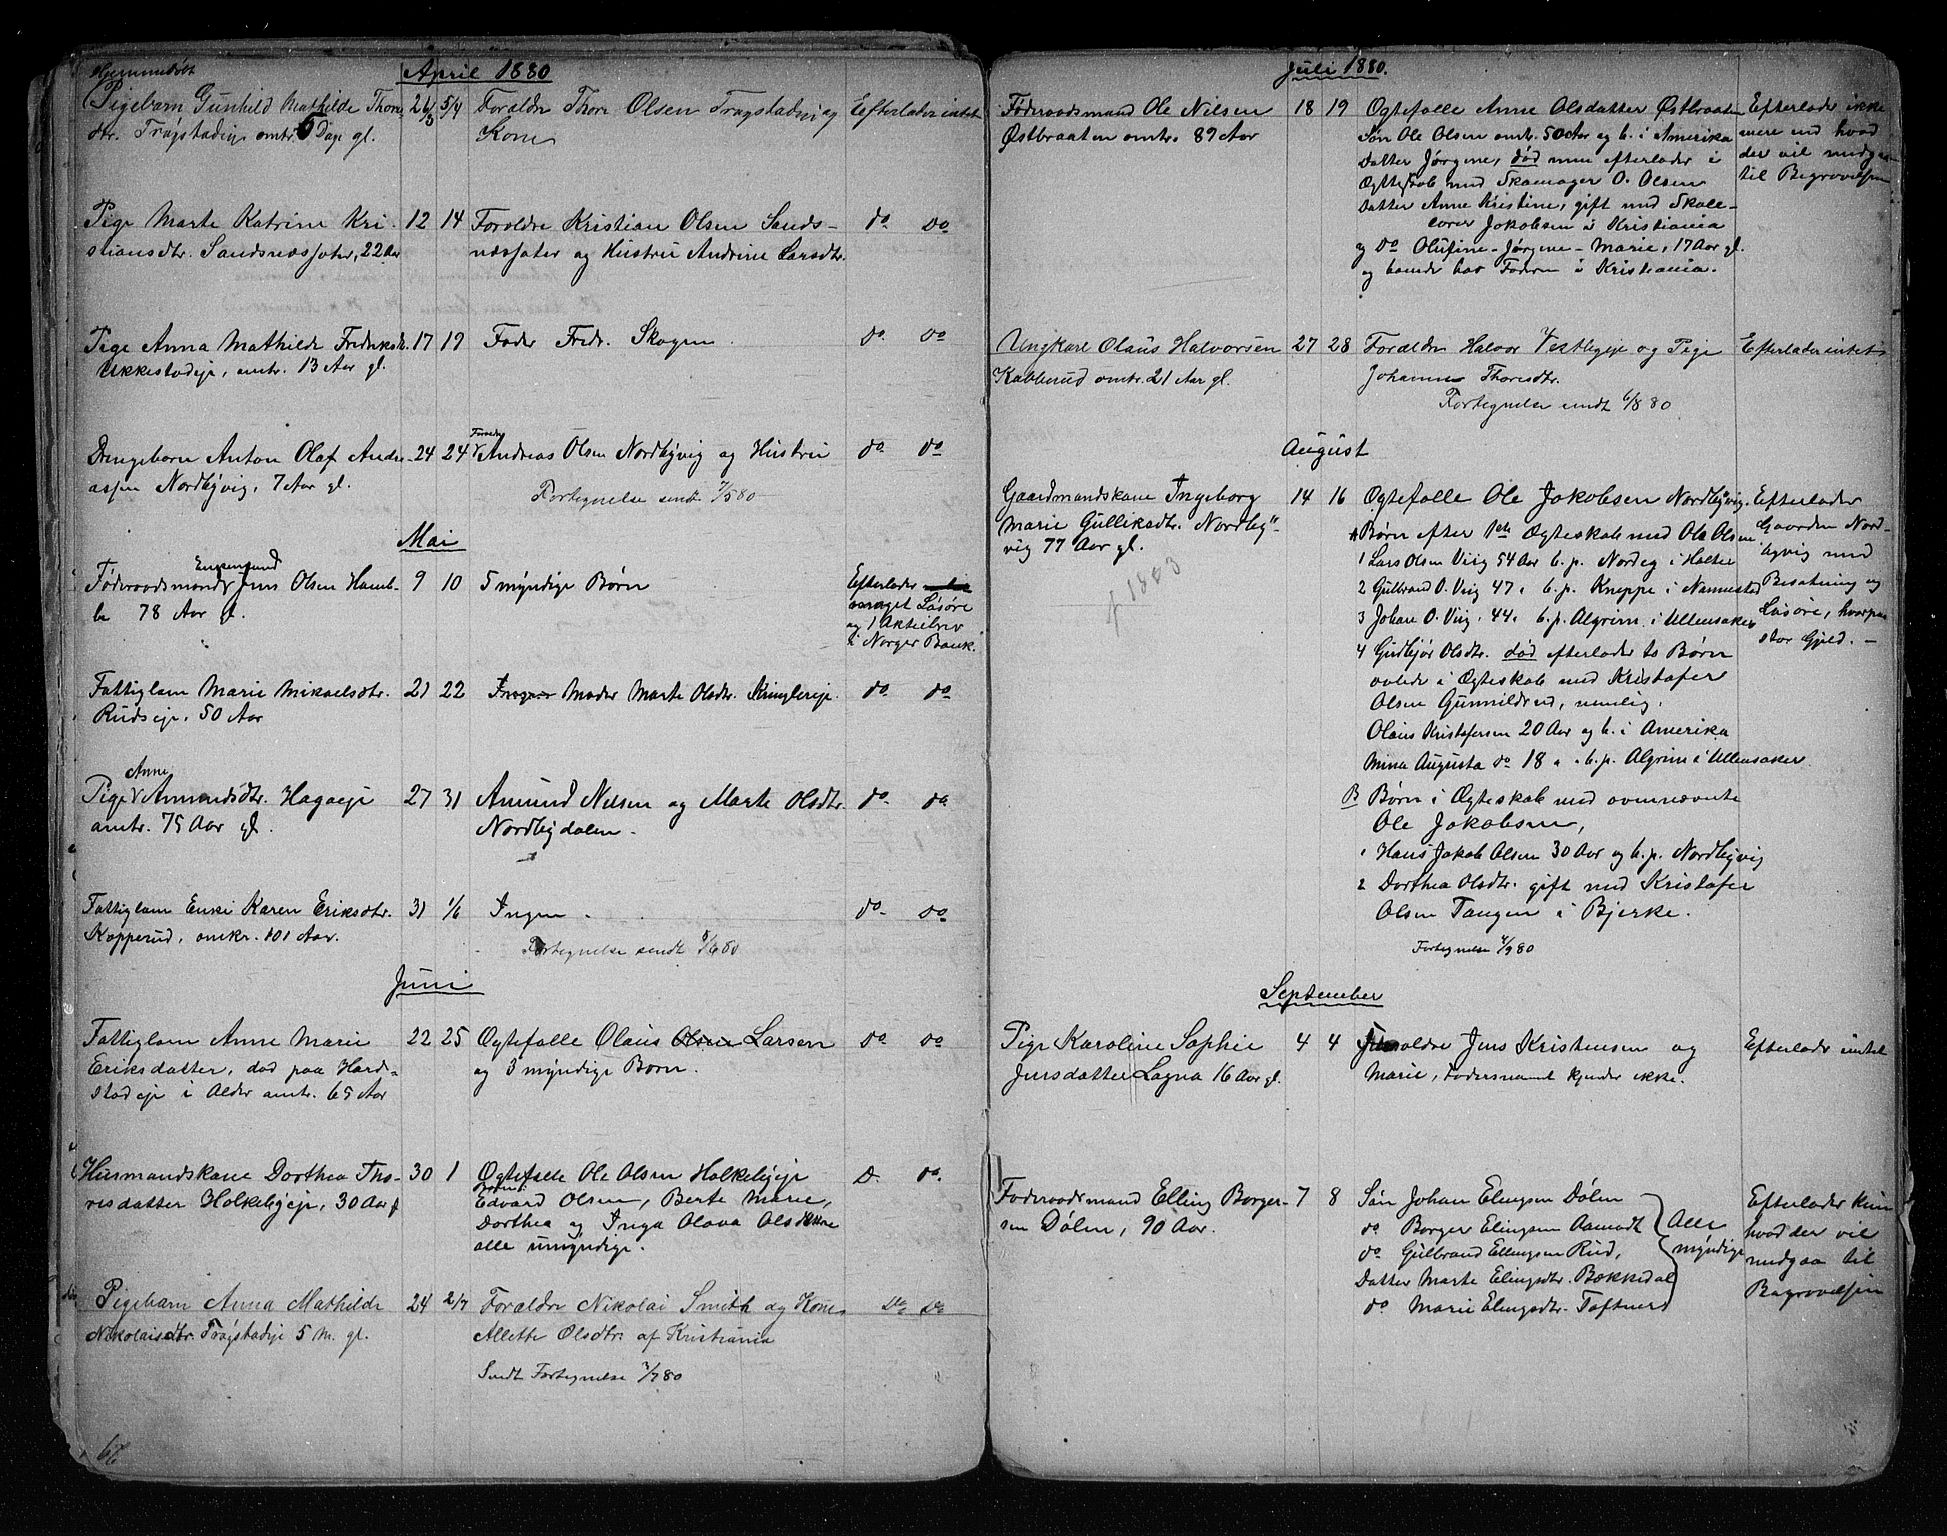 Hjemmedøbt
April 1880
Pigebarn Gunhild Mathilde Thors- 26/3 5/4 Forældre Thor Olsen Trøgstadeie og Efterlader intet
dtr. Trøgstadeie omtr. 5 Dage gl. Kone
Pige Marte Katrine Kri- 12 14 Forældre Kristian Olsen Sands- do. do
stiansdtr. Sandsnæssæter, 22 Aar næssæter og Hustru Andrine Larsdtr.
Pige Anna Mathilde Frederiksdtr. 17 19 Fader Fredr. Skogen. do. do
Ukkestadeje, omtr. 13 Aar gl.
Drengebarn Anton Olaf Andre- 24 24 Forældre Andreas Olsen Nordbyvig og Hustru do. do
assen Nordbyvig, 7 Aar gl.
Fortegnelse sendt 7/5 80
Mai
Enkemand
Føderaadsmand Jens Olsen Hamb- 9 10 5 myndige Børn Efterlader
be 78 Aar gl. Løsøre
og 1 Aktiebrev
i Norges Bank.
Fattiglem Marie Mikaelsdtr. 21 22 Moder Marte Olsdtr. Kringlereje do. do.
Rudseje, 50 Aar
Anne
Pige Amundsdtr. Hagaeje 27 31 Amund Nilsen og Marte Olsdtr. do. do.
omtr. 75 Aar gl. Nordbydalen.
Fattiglem Enke Karen Eriksdtr. 31 1/6 Ingen. do. do
Kopperud, omkr. 101 Aar.
Fortegnelse sendt 5/6 80
Juni
Fattiglem Anne Marie 22 25 Ægtefælle Olaus Olsen Larsen do do
Eriksdatter, død paa Hard- og 3 myndige Børn.
stadeje i Alder omtr. 65 Aar
Husmandskone Dorthea Tho- 30 1 Ægtefælle Ole Olsen Holkebyeje D. do.
resdatter Holkebyeje, 30 Aar gl Edvard Olsen, Berte Marie,
Dorthea og Inga Olava Olsdøttre
alle umyndige.
Pigebarn Anna Mathilde 24 2/7 Forældre Nikolai Smith og Kone Do Do
Nikolaisdtr. Trøgstadeje 5 M. gl. Allette Olsdtr. af Kristiania
Sendt Fortegnelse 3/7 80
66
Juli 1880.
Føderaadsmand Ole Nilsen 18 19 Ægtefælle Anne Olsdatter Østbraaten Efterlader ikke
Østbraaten omtr. 89 Aar Søn Ole Olsen omtr. 50 Aar og b. i Amerika mere end hvad
Datter Jørgine, død men efterlader i der vil medgaa
Ægteskab med Skomager O. Olsen til Begravelsen
Datter Anne Kristine, gift med Skole-
lærer Jakobsen i Kristiania
og do Olufine Jørgine Marie, 17 Aar gl.
og hende hos Faderen i Kristiania.
Ungkarl Olaus Halvorsen 27 28 Forældre Halvor Vestbyeje og Pige Efterlader intet
Kabberud omtr. 21 Aar gl. Johanne Thoresdtr.
Fortegnelse sendt 6/8 80
August
Gaardmandskone Ingeborg 14 16 Ægtefælle Ole Jakobsen Nordbyvig. Efterlader
Marie Gulliksdtr. Nordby- A Børn efter 1ste Ægteskab med Ole Olsen Gaarden Nord-
vig 77 Aar gl. 1 Lars Olsen Viig 54 Aar b. p. Nordeg i Holter byvig med
2 Gulbrand O. Viig 47 b. p. Kneppe i Nannestad Besætning og
3 Johan O. Viig. 44 b. p. Algrim i Ullensaker Løsøre, hvorpaa
4 Gudbjør Olsdtr. død efterlader to Børn stor Gjeld.
avlede i Ægteskab med Kristofer
Olsen Gunnildrud, nemlig.
Olaus Kristofersen 20 Aar og b. i Amerika
Mina Augusta do 18 b. p. Algrim i Ullensaker
B Børn i Ægteskab med ovennævnte
Ole Jakobsen,
1 Hans Jakob Olsen 30 Aar og b. p. Nordbyvig
2 Dorthea Olsdtr. gift med Kristofer
Olsen Tangen i Bjerke.
Fortegnelse 4/9 80
September
Pige Karoline Sophie 4 4 Forældre Jens Kristensen og Efterlader intet
Jensdatter Lagna 16 Aar gl. Marie, Fadersnavnet kjendes ikke.
Føderaadsmand Elling Borger- 7 8 Søn Johan Elingsen Dølen Efterlader kun
sen Dølen, 90 Aar. do Borger Elingsen Aamodt Alle hvad der vil
do. Gulbrand Ellingsen Rud, myndige medgaa til
Datter Marte Elingsdtr. Bækkedal Begravelsen
do Marie Elingsdtr. Toftnerd